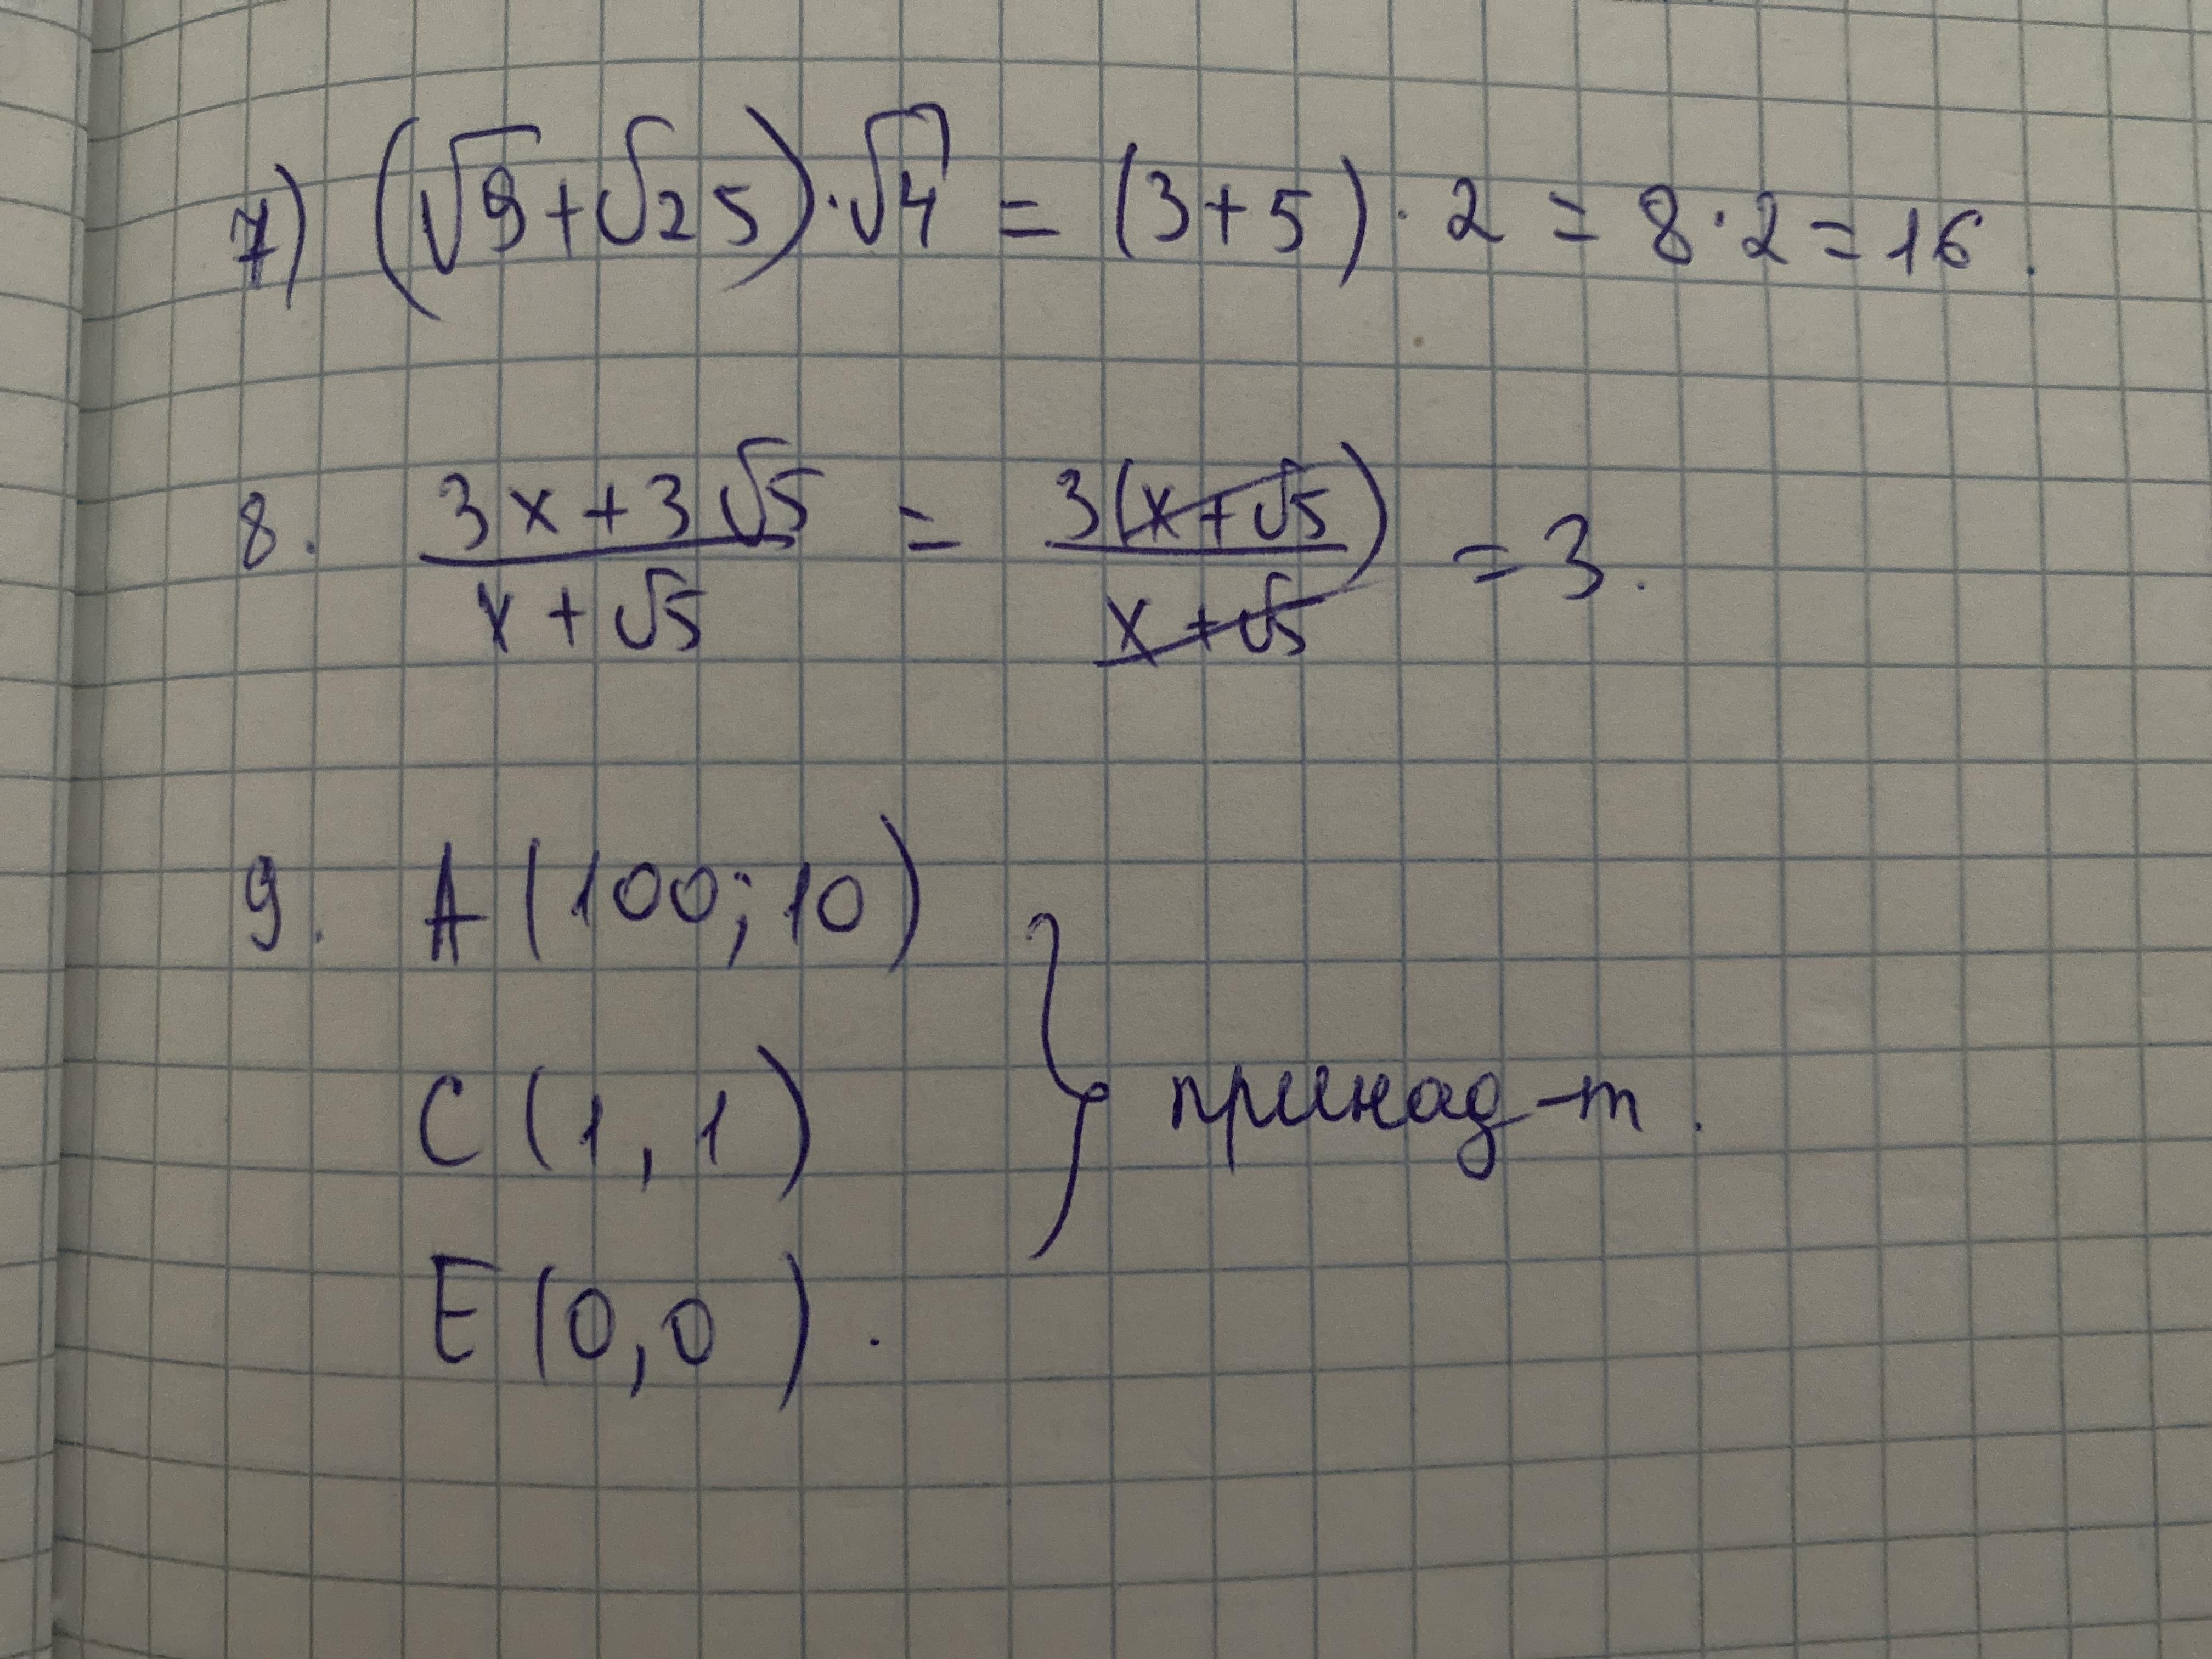 7) (√9+√25)·√4 = (3+5)·2 = 8·2=16.
8. (3x+3√5)/(x+√5) = 3(x+√5)/(x+√5) =3.
9. A(100;10)
C(1,1) } принад-т.
E(0,0).